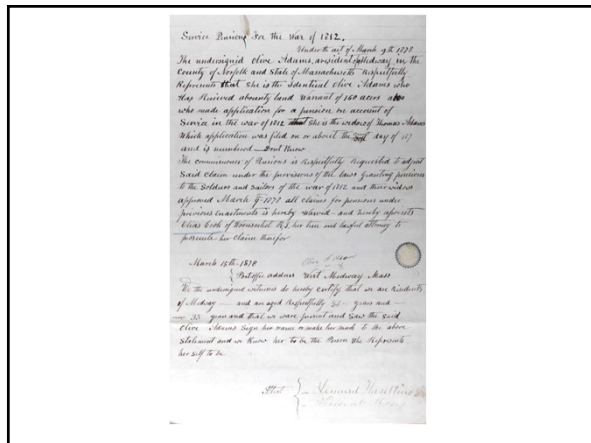 Service Pensions For the War of 1812.
Under the act of March 9th 1878
The undersigned Olive Adams, a resident of Medway in the
County of Norfolk and State of Massachusetts Respectfully
Represents that She is the Identical Olive Adams who
Has Recieved a bounty land Warrant of 160 acres also
who made application for a pension on account of
Service in the war of 1812 She is the widow of Thomas Adams
Which application was filed on or about the day of 187
and is numbered — Dont Know
The commissioner of Pensions is Respectfully Requested to adjust
Said claim under the provisions of the laws Granting pensions
to the Soldiers and Sailors of the war of 1812 and their widows
approved March 9- 1878 all claims for pensions under
previous Enactments is hereby Waived- and hereby apoints
Elias Cook of Woonsocket R.I. her true and lawful attorney to
prosecute her claim therefor
March 15th-1878
Post office address West Medway Mass
We the undersigned witnesses do hereby certify that we are Residents
of Medway — and are aged Respectfully years and
35 years and that we were present and Saw the Said
Olive Adams Sign her name or make her mark to the above
Statement and we Know her to be the Person She Represents
her self to be.
Attest